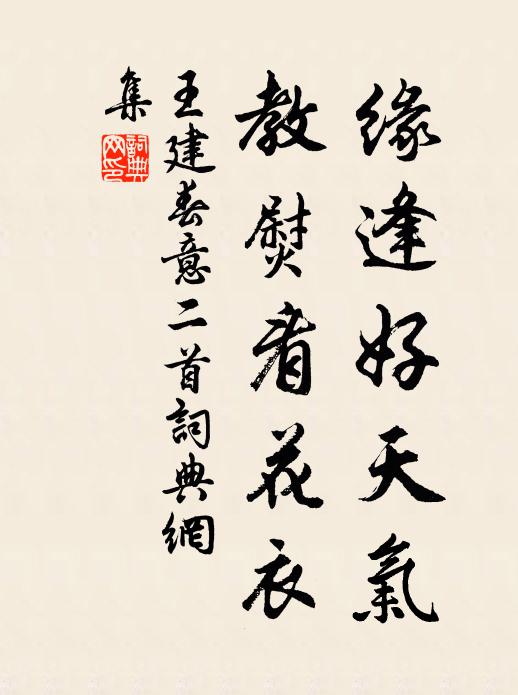 緣逢好天氣
教熨看花衣
王建春意二首詞典網
集
詞典網印